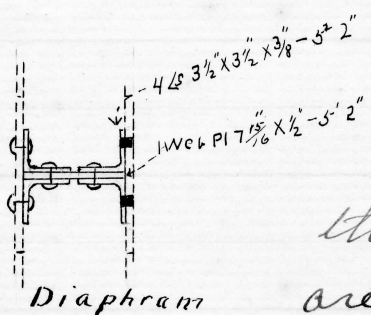 4 Ls 3½"X3½"X⅜"-5' 2"
1 Web Pl 7 15/16"X½"-5' 2"
Diaphram
are